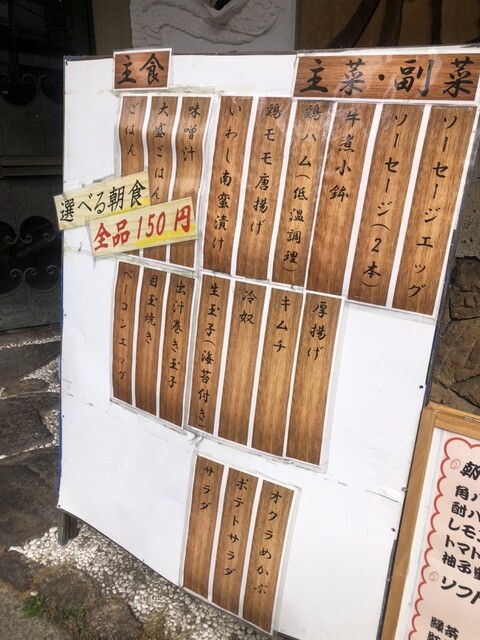 主菜・副菜
ソーセージエッグ
ソーセージ(2本)
牛煮小鉢
鶏ハム(低温調理)
鶏モモ唐揚げ
いわし南蛮漬け
主食
味噌汁
大盛ごはん
ごはん
選べる朝食
全品150円
厚揚げ
キムチ
冷奴
生玉子(海苔付き)
出汁巻き玉子
目玉焼き
ベーコンエッグ
オクラめかぶ
ポテトサラダ
サラダ
朝
角ハ
酎ハ
レモ
トマト
柚子
ソフ
緑茶